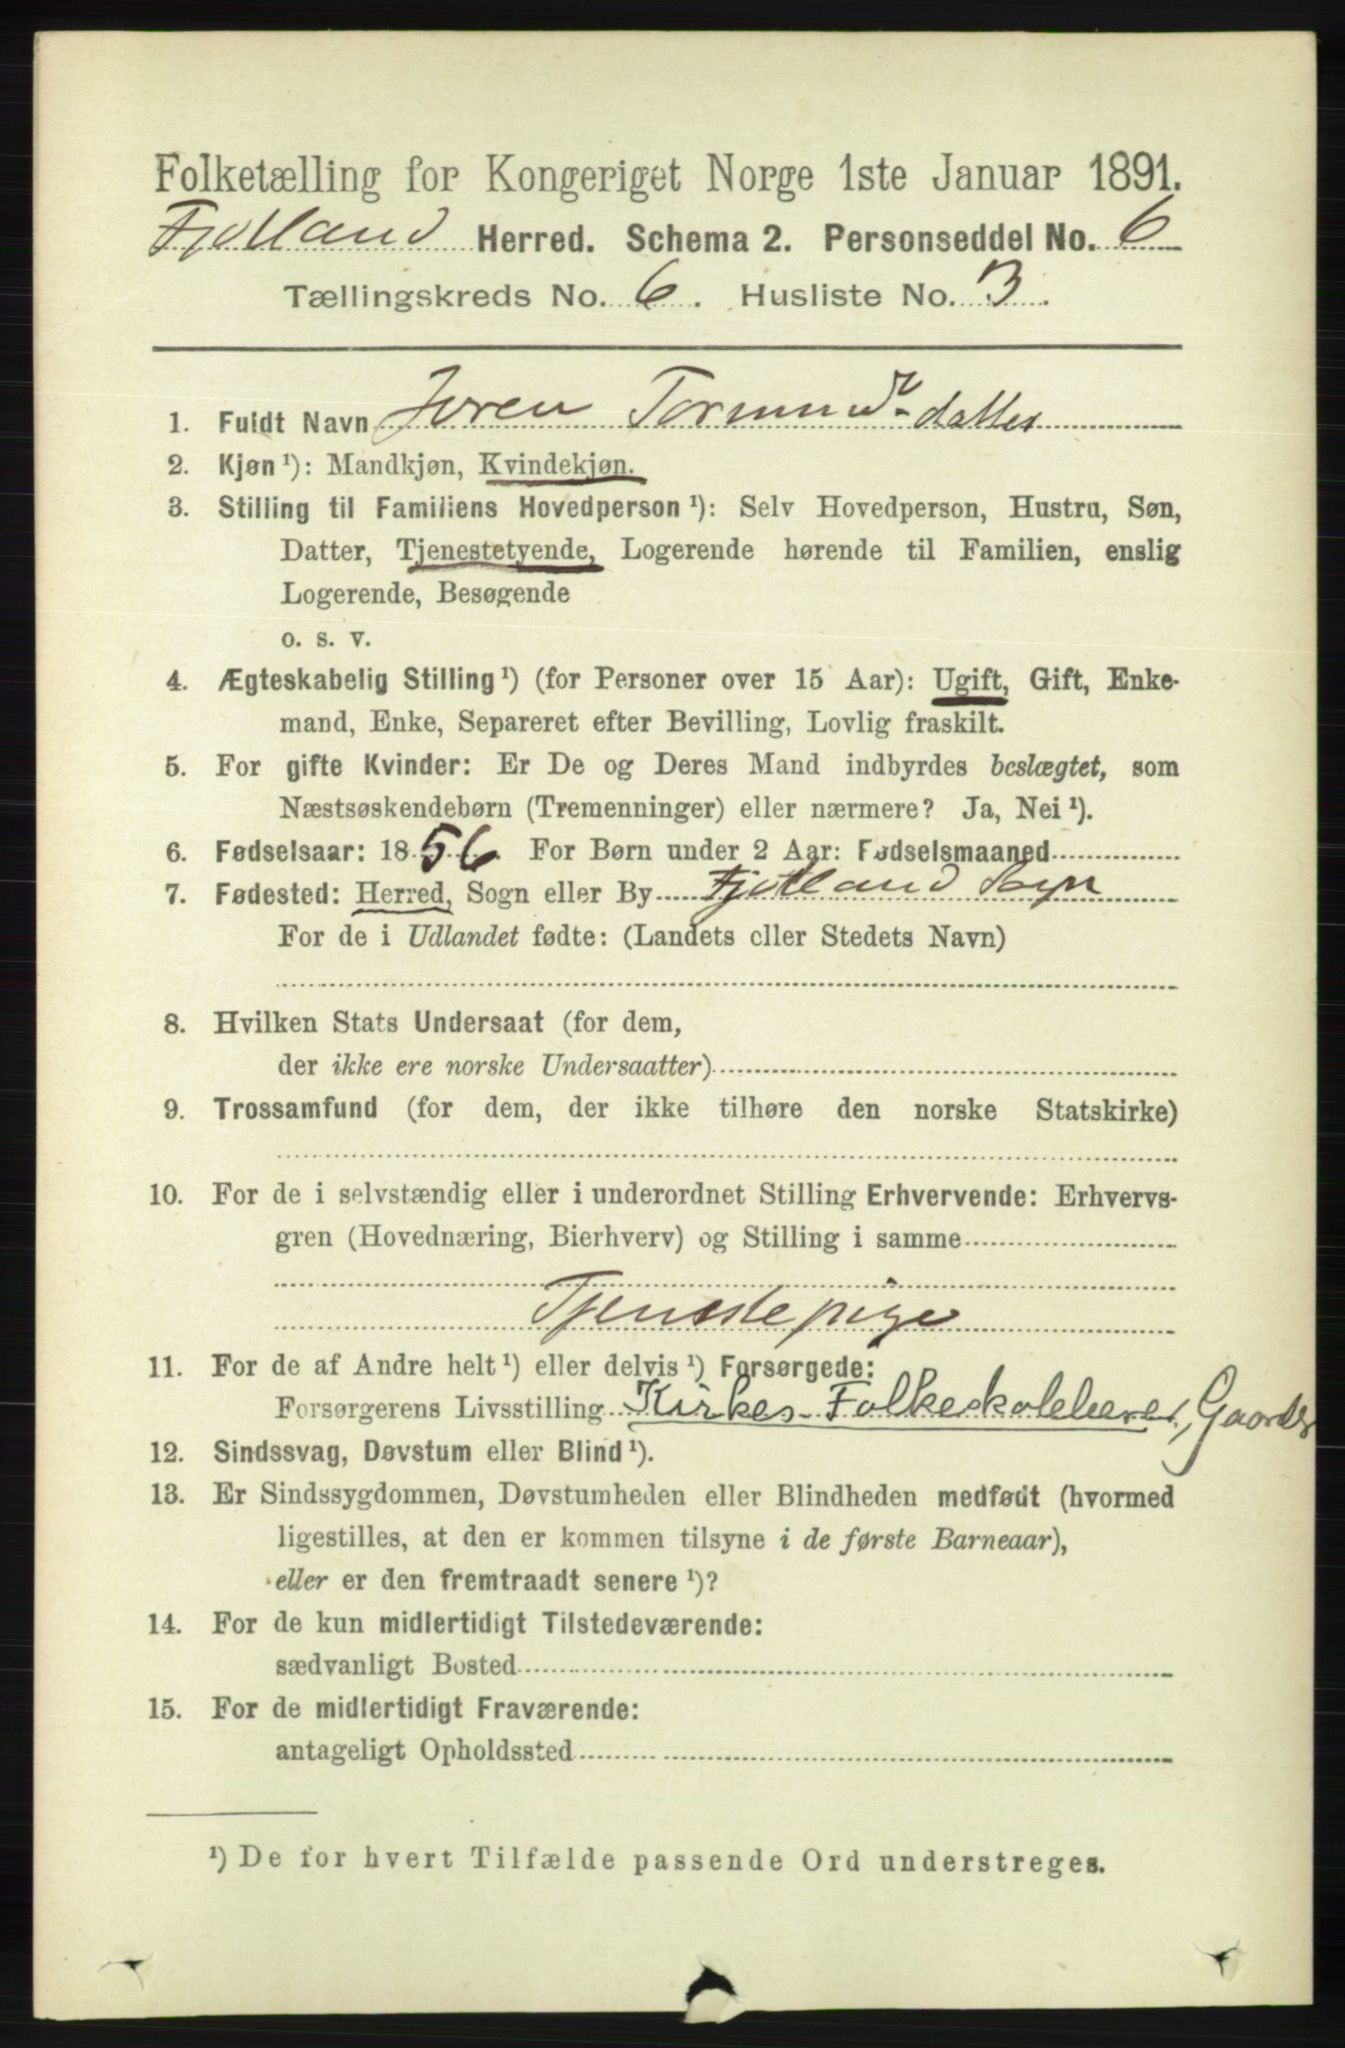 Folketælling for Kongeriget Norge 1ste Januar 1891.
Fjotland Herred. Schema 2. Personseddel No. 6
Tællingskreds No. 6. Husliste No. 3.
1. Fuldt Navn Joren Tormundsdatter
2. Kjøn ¹): Mandkjøn, Kvindekjøn.
3. Stilling til Familiens Hovedperson ¹): Selv Hovedperson, Hustru, Søn,
Datter, Tjenestetyende, Logerende hørende til Familien, enslig
Logerende, Besøgende
o. s. v.
4. Ægteskabelig Stilling ¹) (for Personer over 15 Aar): Ugift, Gift, Enke-
mand, Enke, Separeret efter Bevilling, Lovlig fraskilt.
5. For gifte Kvinder: Er De og Deres Mand indbyrdes beslægtet, som
Næstsøskendebørn (Tremenninger) eller nærmere? Ja, Nei ¹).
6. Fødselsaar: 1856. For Børn under 2 Aar: Fødselsmaaned
7. Fødested: Herred, Sogn eller By Fjotland Sogn
For de i Udlandet fødte: (Landets eller Stedets Navn)
8. Hvilken Stats Undersaat (for dem,
der ikke ere norske Undersaatter)
9. Trossamfund (for dem, der ikke tilhøre den norske Statskirke)
10. For de i selvstændig eller i underordnet Stilling Erhvervende: Erhvervs-
gren (Hovednæring, Bierhverv) og Stilling i samme
Tjenestepige
11. For de af Andre helt ¹) eller delvis ¹) Forsørgede:
Forsørgerens Livsstilling Kirkes. Folkeskolelærer, Gaardb
12. Sindssvag, Døvstum eller Blind ¹).
13. Er Sindssygdommen, Døvstumheden eller Blindheden medfødt (hvormed
ligestilles, at den er kommen tilsyne i de første Barneaar),
eller er den fremtraadt senere ¹)?
14. For de kun midlertidigt Tilstedeværende:
sædvanligt Bosted
15. For de midlertidigt Fraværende:
antageligt Opholdssted
¹) De for hvert Tilfælde passende Ord understreges.